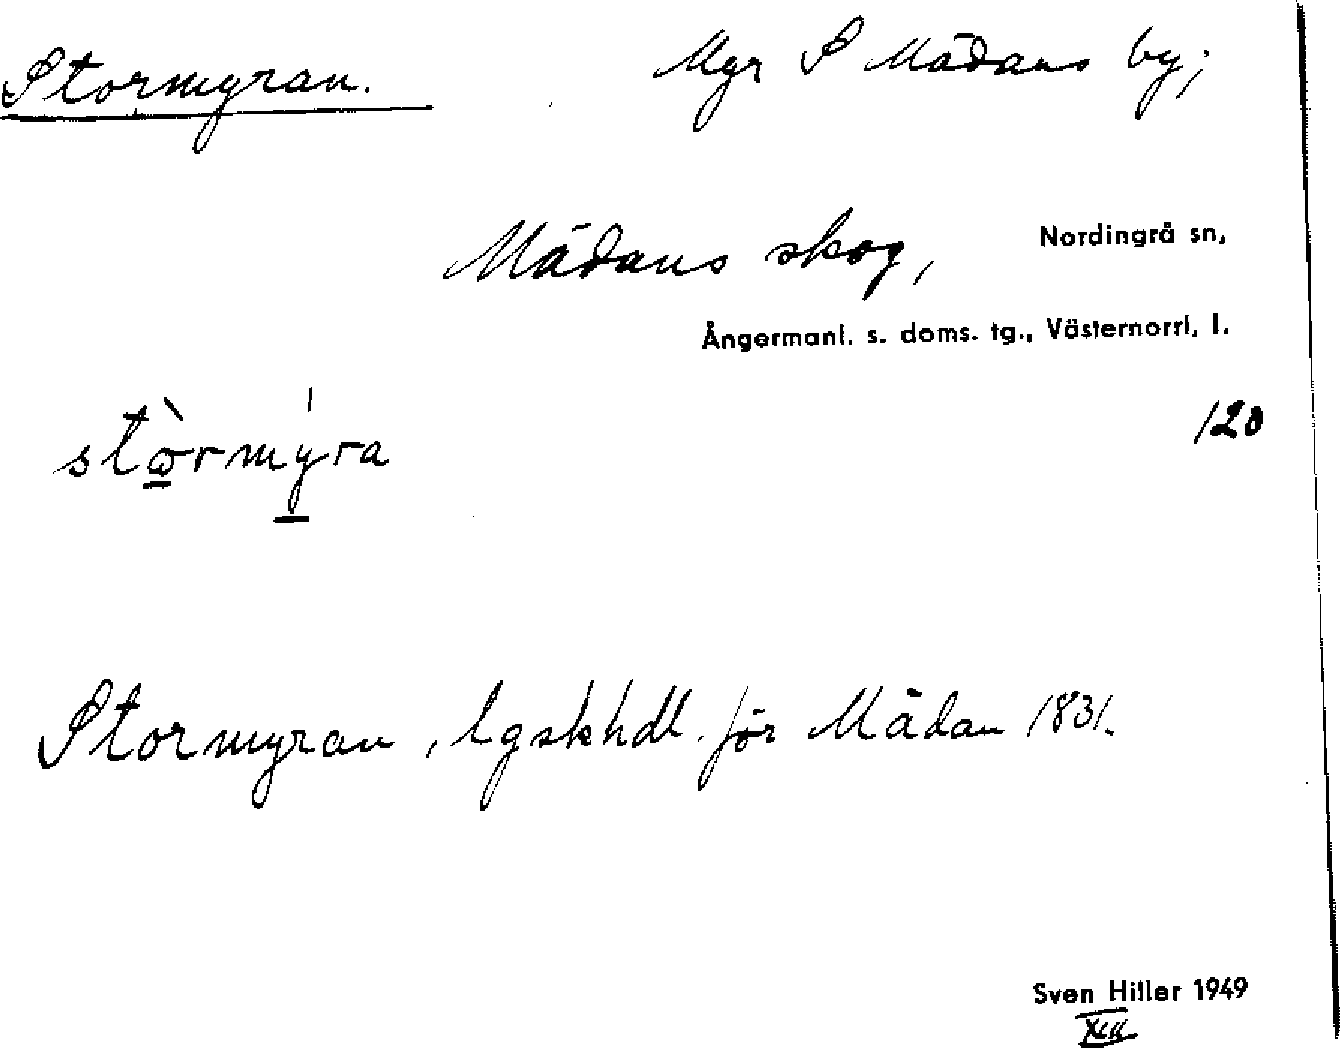 Stormyran. Myr S Mädans by;
Mädans skog, Nordingrå sn,
Ångermanl. s. doms. tg., Västernorrl. l.
120
stòrmýra
Stormyran, lgskhdl. för Mädan 1831.
Sven Hiller 1949
XIII